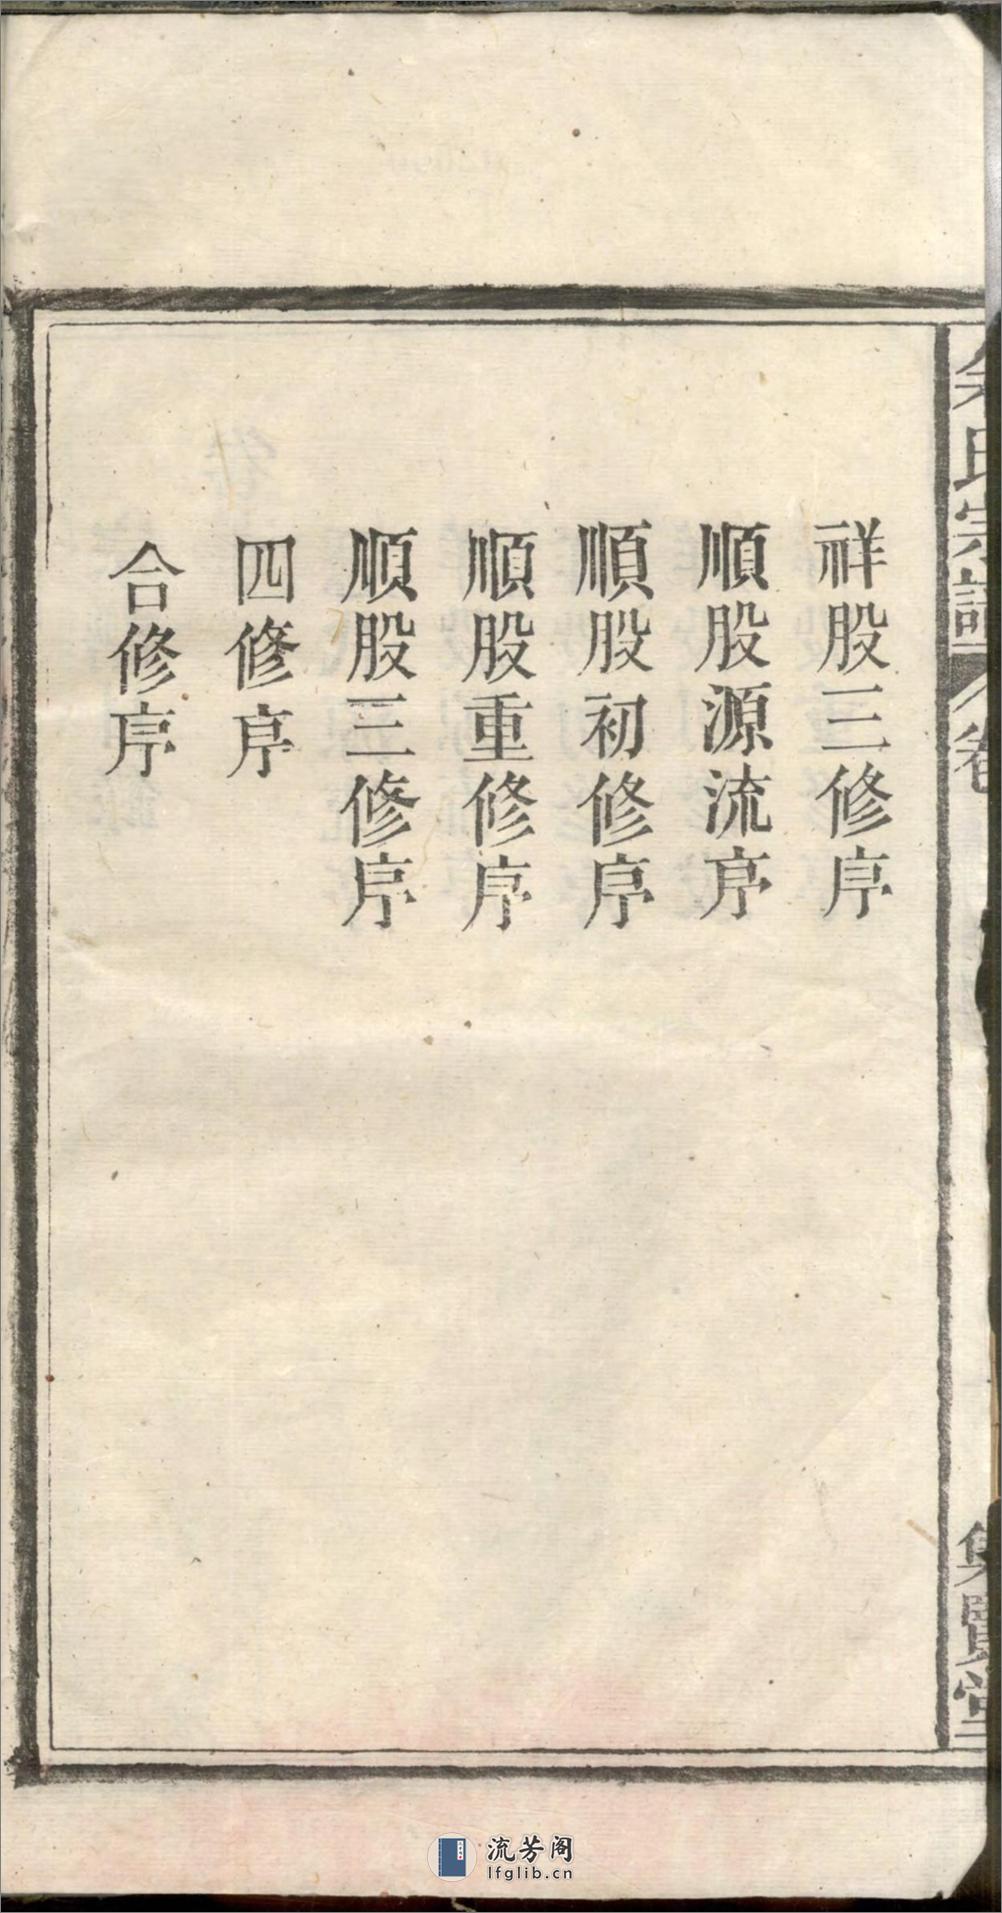 祥股三修序
順股源流序
順股初修序
順股重修序
順股三修序
四修序
合修序
氏宗譜 卷
集賢堂
流芳阁
lfglib.cn